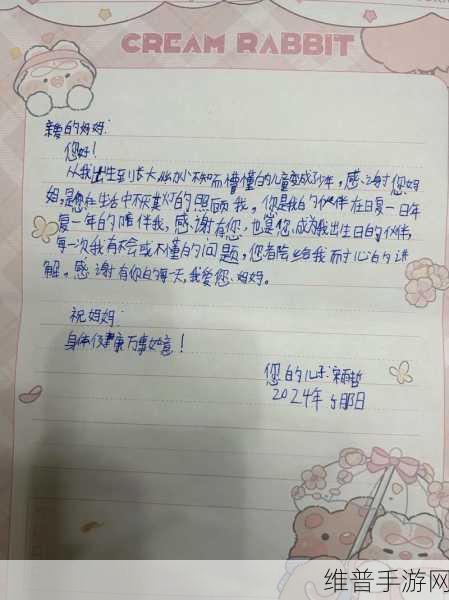 CREAM RABBIT
亲爱的妈妈:
您好!
从我出生到长大 从小不知而懵懂的儿童变成了少年,感谢您妈
妈,是您在生活中 的照顾我。你是我的伙伴在日复一日年
复一年的陪伴我,感谢有您,也是您成为我出生日的伙伴,
每一次我有不会或不懂的问题,您都会给我耐心的讲
解。感谢有你的每一天,我爱您、妈妈。
祝妈妈:
身体健康万事如意!
您的儿子:
2024年5月 日
维普手游网